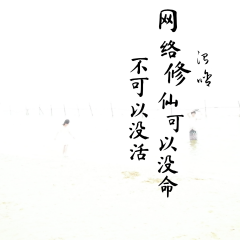 网络修仙可以没命
不可以没活